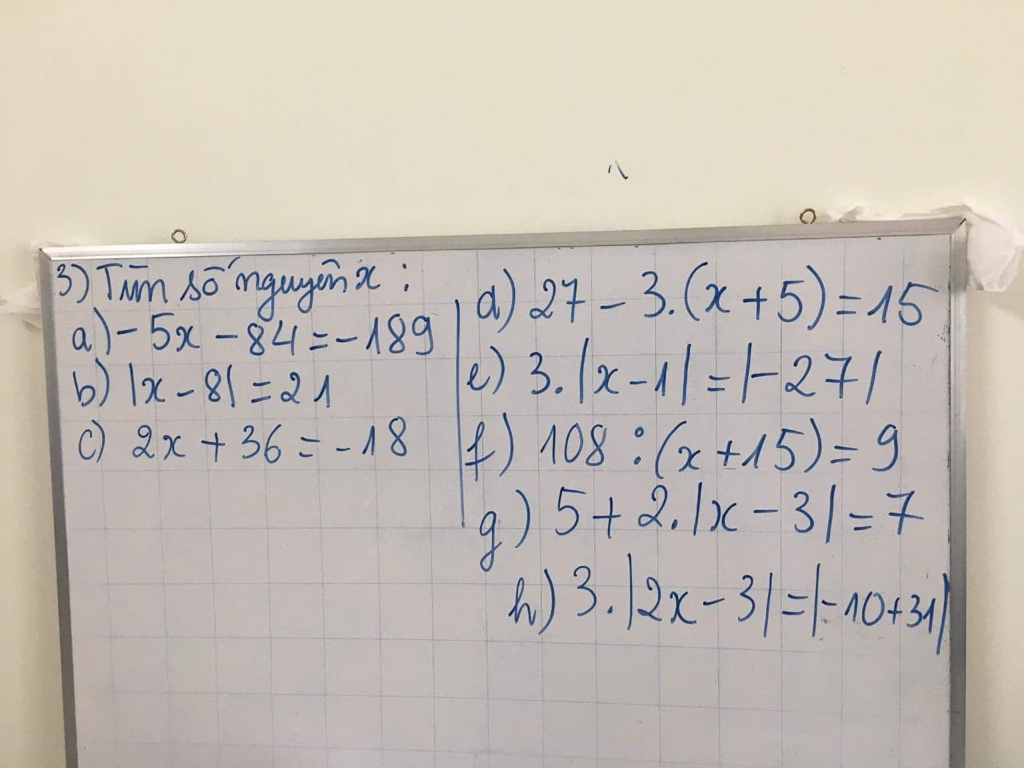 3) Tìm số nguyên x :
a) - 5x - 84 = - 189
b) |x - 8| = 21
c) 2x + 36 = - 18
d) 27 - 3.(x + 5) = 15
e) 3. |x - 1| = |- 27|
f) 108 : (x + 15) = 9
g) 5 + 2. |x - 3| = 7
h) 3. |2x - 3| = |- 10 + 31|